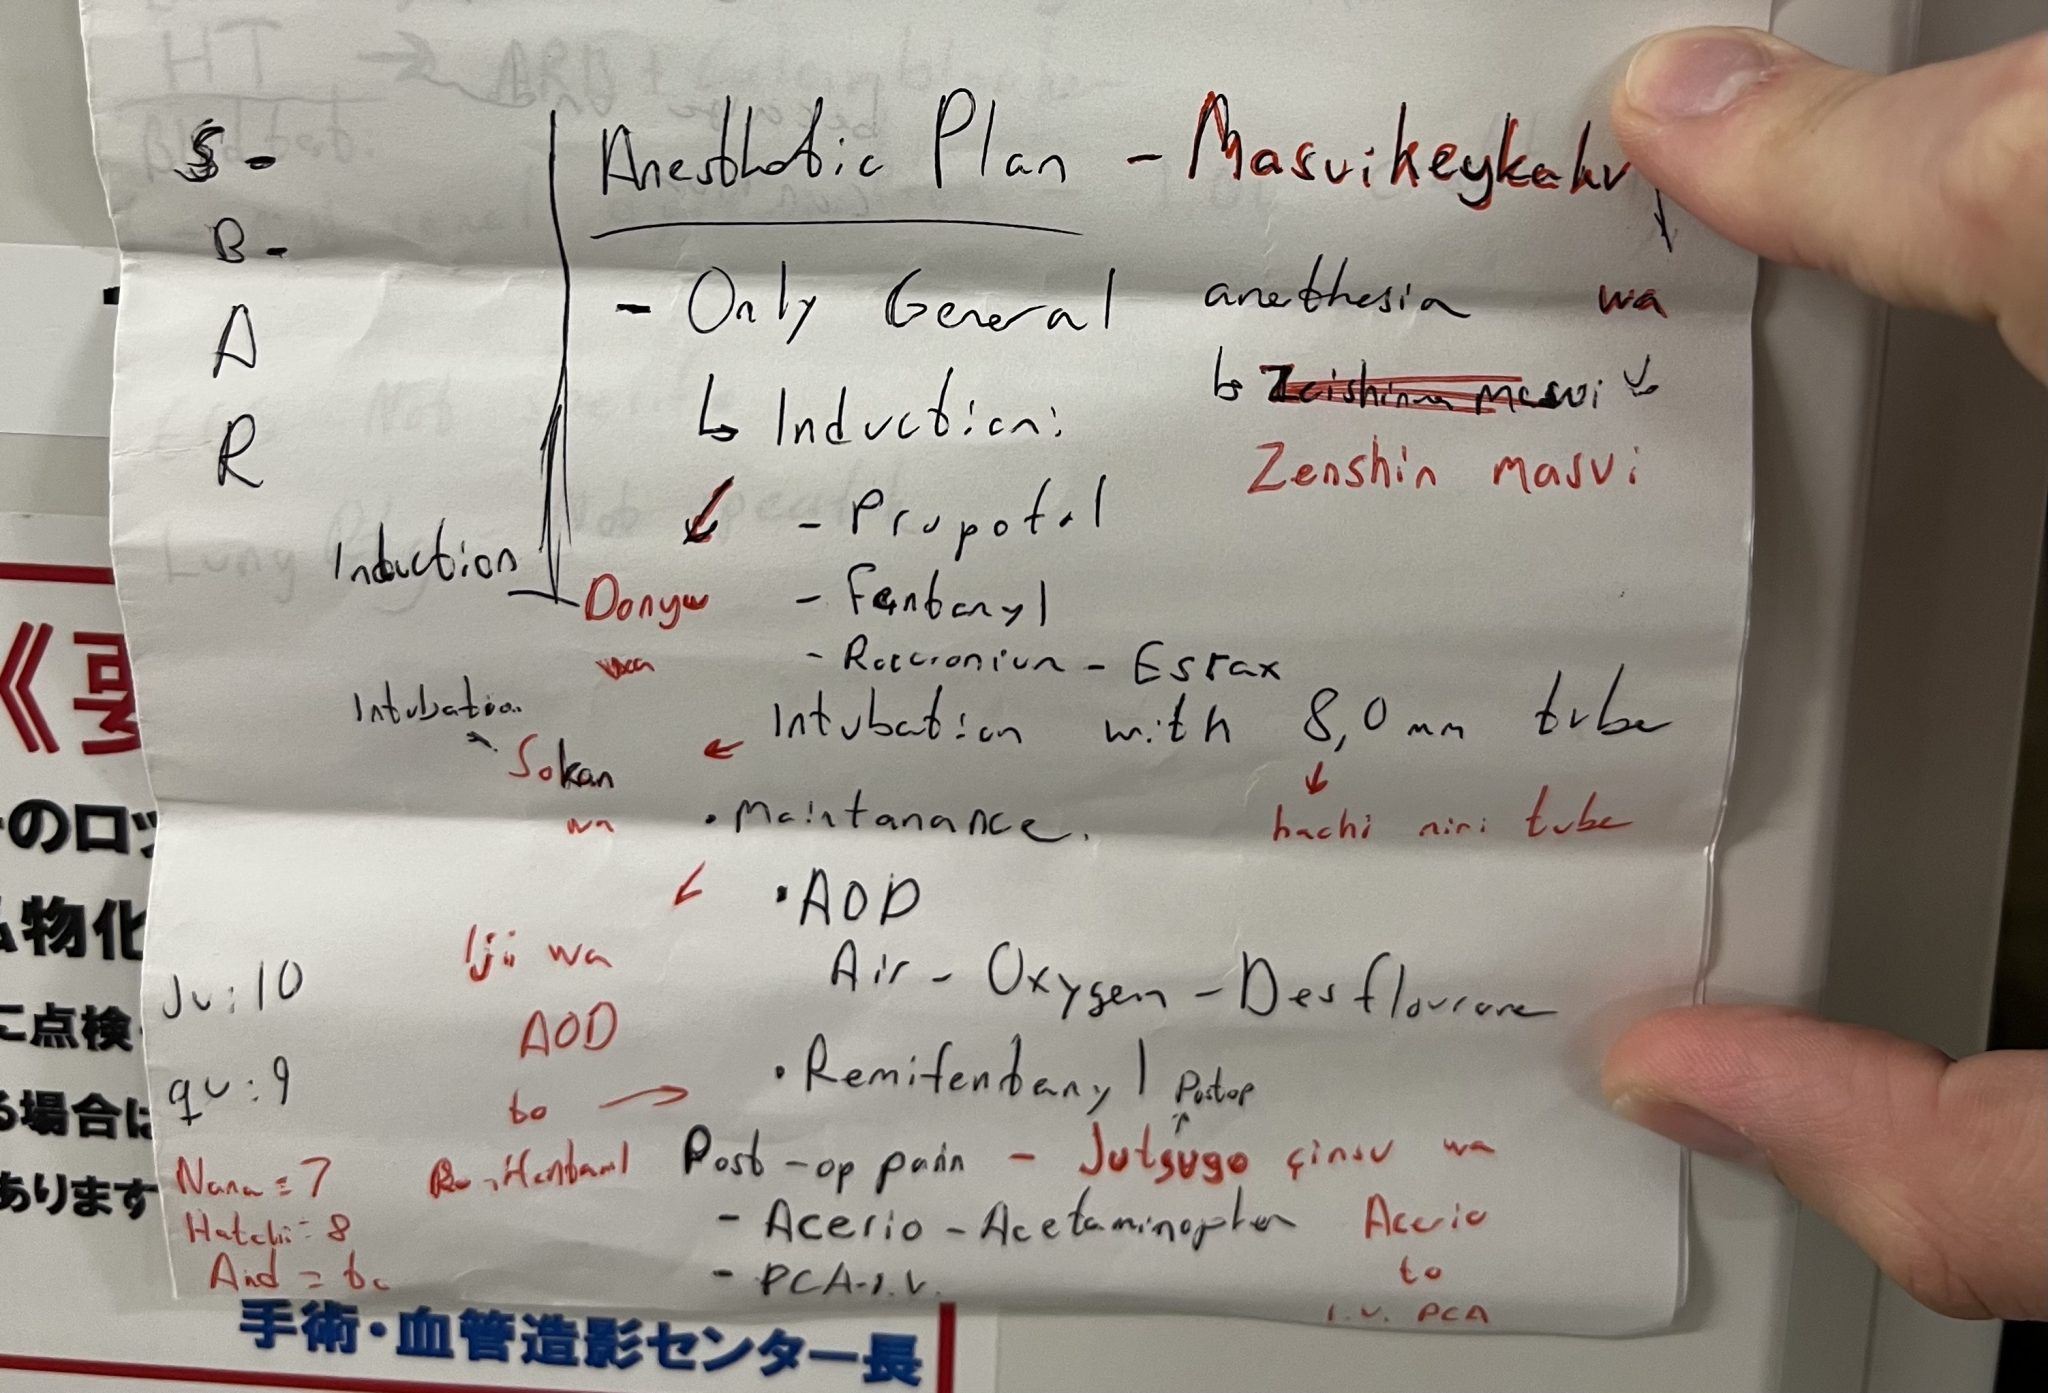 S -
B -
A
R
Anesthetic Plan - Masuikeykaku
- Only General anethesia wa
↳ Zeishinn masui
Zenshin masui
↳ Induction:
- Propofol
Induction
Donyu - Fentanyl
wa - Roccroniun - Esrax
Intubation
Intubation with 8,0 mm tube
Sokan
wa
• Maintanance.
hachi miri tube
• AOD
Iji wa
Air - Oxygen - Desflourane
AOD
• Remifentanyl
to
Postop
Post-op pain - Jutsugo çinsu wa
Remifentanyl
- Acerio - Acetaminophen
Acerio
- PCA-I.V.
to
I.V. PCA
Ju: 10
qu: 9
Nana = 7
Hatchi = 8
And = to
《
のロッ
物化
に点検
る場合は
あります
手術・血管造影センター長